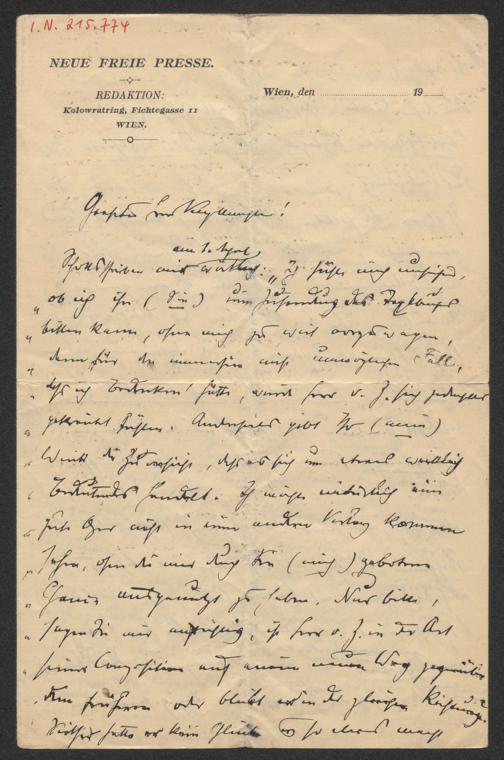 I.N. 215.774
NEUE FREIE PRESSE.
REDAKTION:
Kolowratring, Fichtegasse 11
WIEN.
Wien, den 19
Geehrter Herr
am 1. April
Schott schrieben mir wörtlich: „Ich fühle mich unsicher,
„ ob ich ihn (Sie) um Zusendung des Textbuches
„ bitten kann, ohne mich zu weit vorzuwagen,
„ denn für den immerhin nicht unmöglichen Fall,
„ daß ich Bedenken hätte, würde Herr v. Z. sich jedenfalls
„ gekränkt fühlen. Anderseits gibt Ihr (mein)
„ Werk die Zuversicht, daß es sich um etwas wirklich
„ Bedeutendes handelt. Ich möchte natürlich eine
„ gute Oper nicht in einen anderen Verlag kommen
„ sehen, ohne die mir durch Sie (mich) gebotene
„ Chance ausgenützt zu haben. Nur bitte,
„ sagen Sie mir aufrichtig, ist Herr v. Z. in der Art
„ seiner Composition auf einem neuen Weg gegenüber
„ dem früheren oder bleibt er in der gleichen Richtung.
Seither hatte er kein Glück so etwas